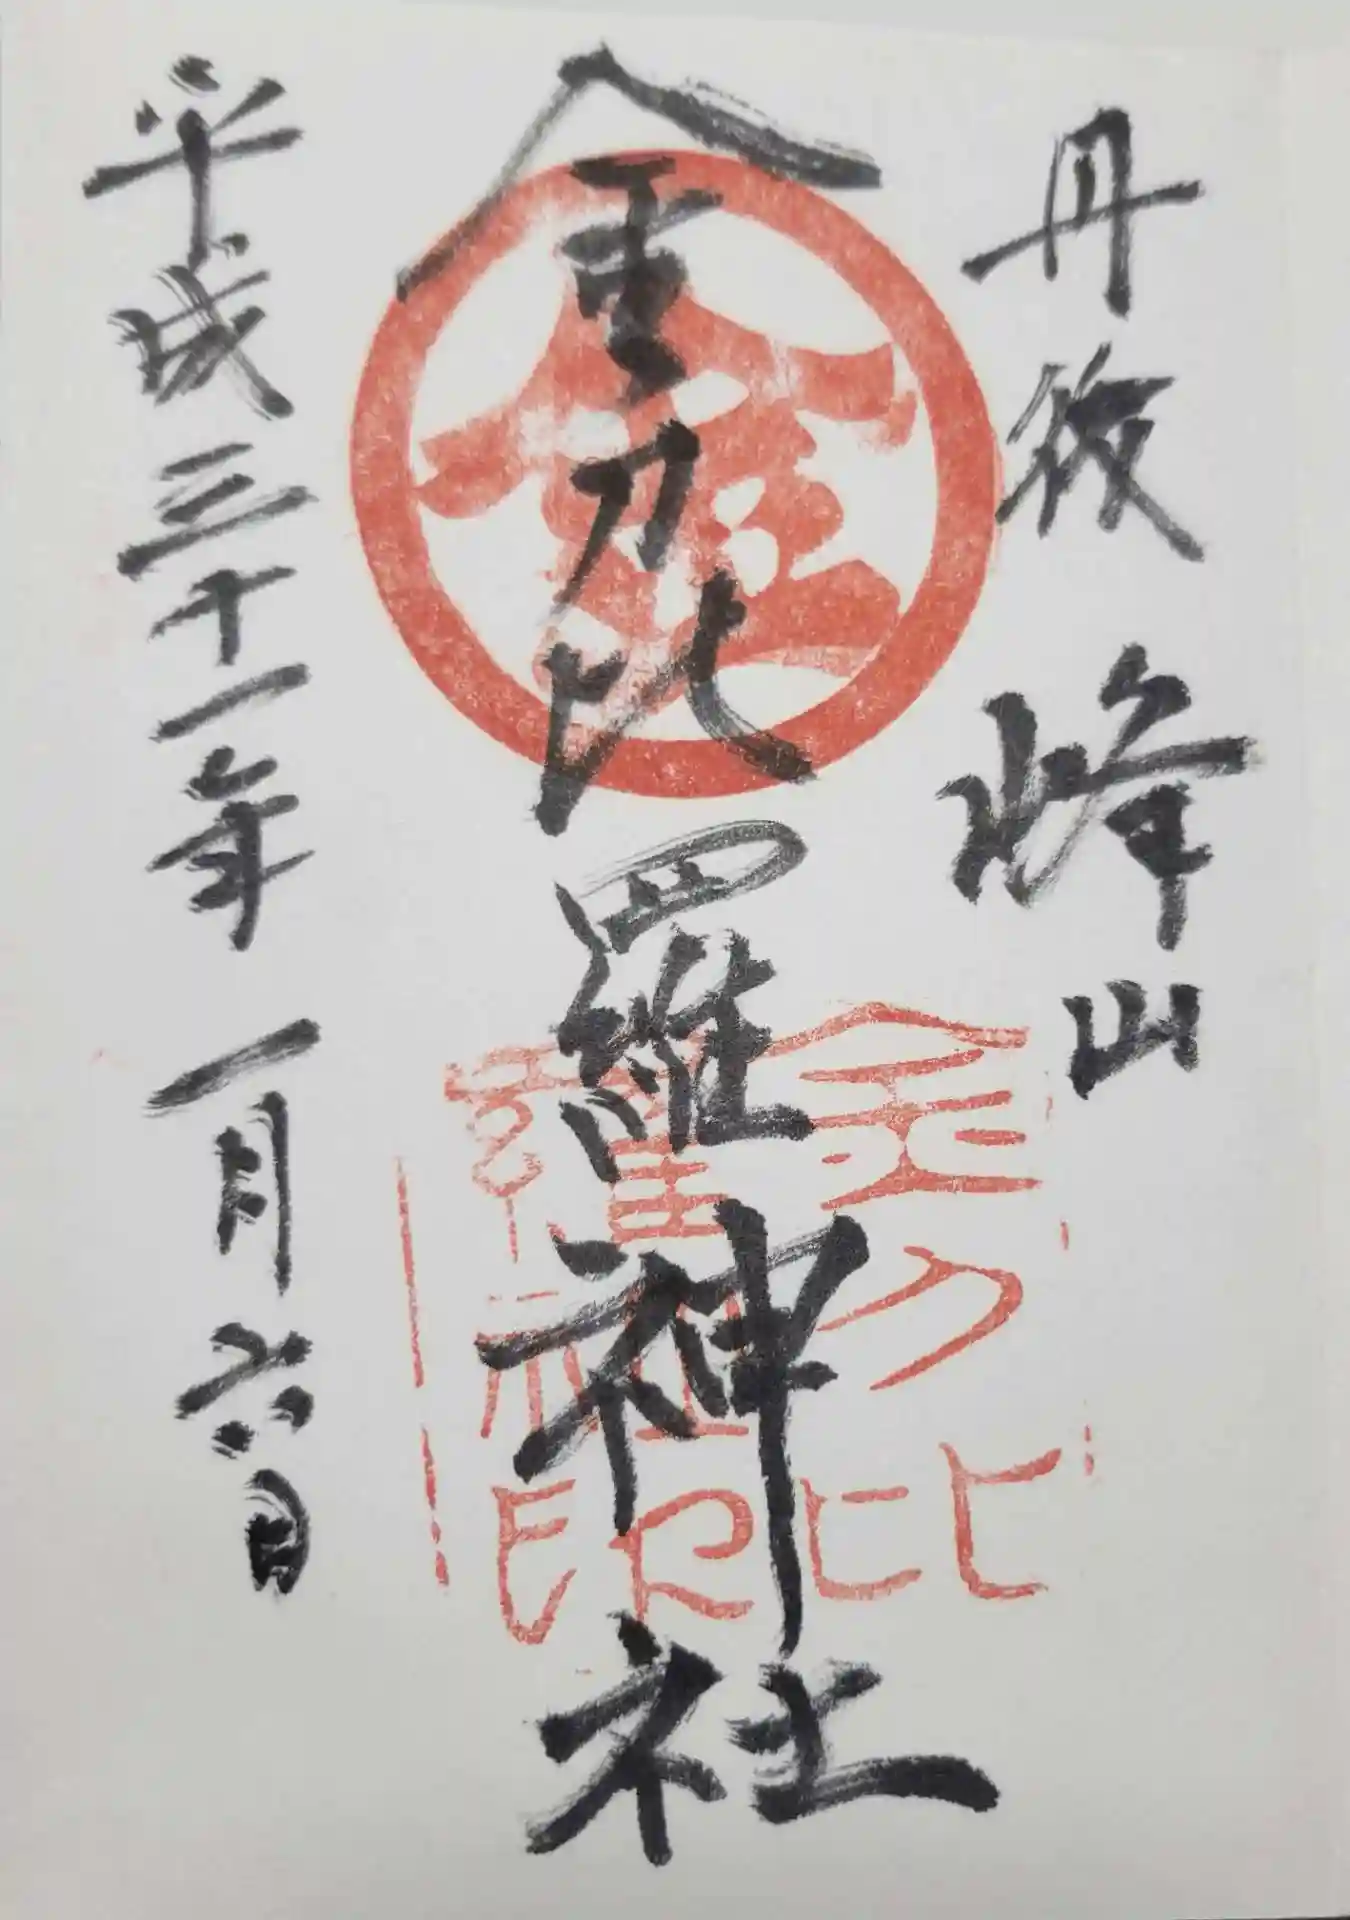 丹後 峰山
金刀比羅神社
平成三十一年 一月六日
金
金刀比羅社印